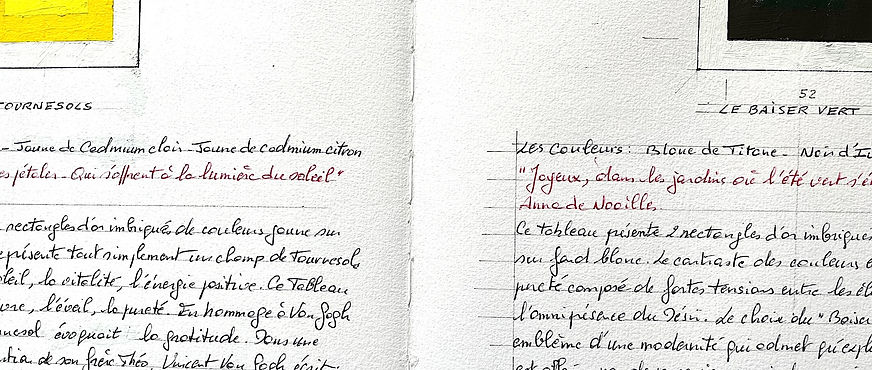 TOURNESOLS
- Jaune de Cadmium clair - Jaune de cadmium citron
pétales - Qui s'offrent à la lumière du soleil"
rectangles d'or imbriqués de couleurs jaune sur
présente tout simplement un champ de Tournesols,
soleil, la vitalité, l'énergie positive. Ce Tableau
l'éveil, la pureté. En hommage à Van Gogh
évoquait la gratitude. Dans une
de son frère Théo, Vincent Van Gogh écrit
52
LE BAISER VERT
Les Couleurs : Blanc de Titane - Noir d'I
"Joyeux, dans les jardins où l'été vert s'é
Anna de Noailles.
Ce tableau présente 2 rectangles d'or imbriqués
sur fond blanc. Le contraste des couleurs e
pureté composé de fortes tensions entre les él
l'omniprésence du Désir. Le choix du "Baiser
emblème d'une modernité qui admet qu'expl